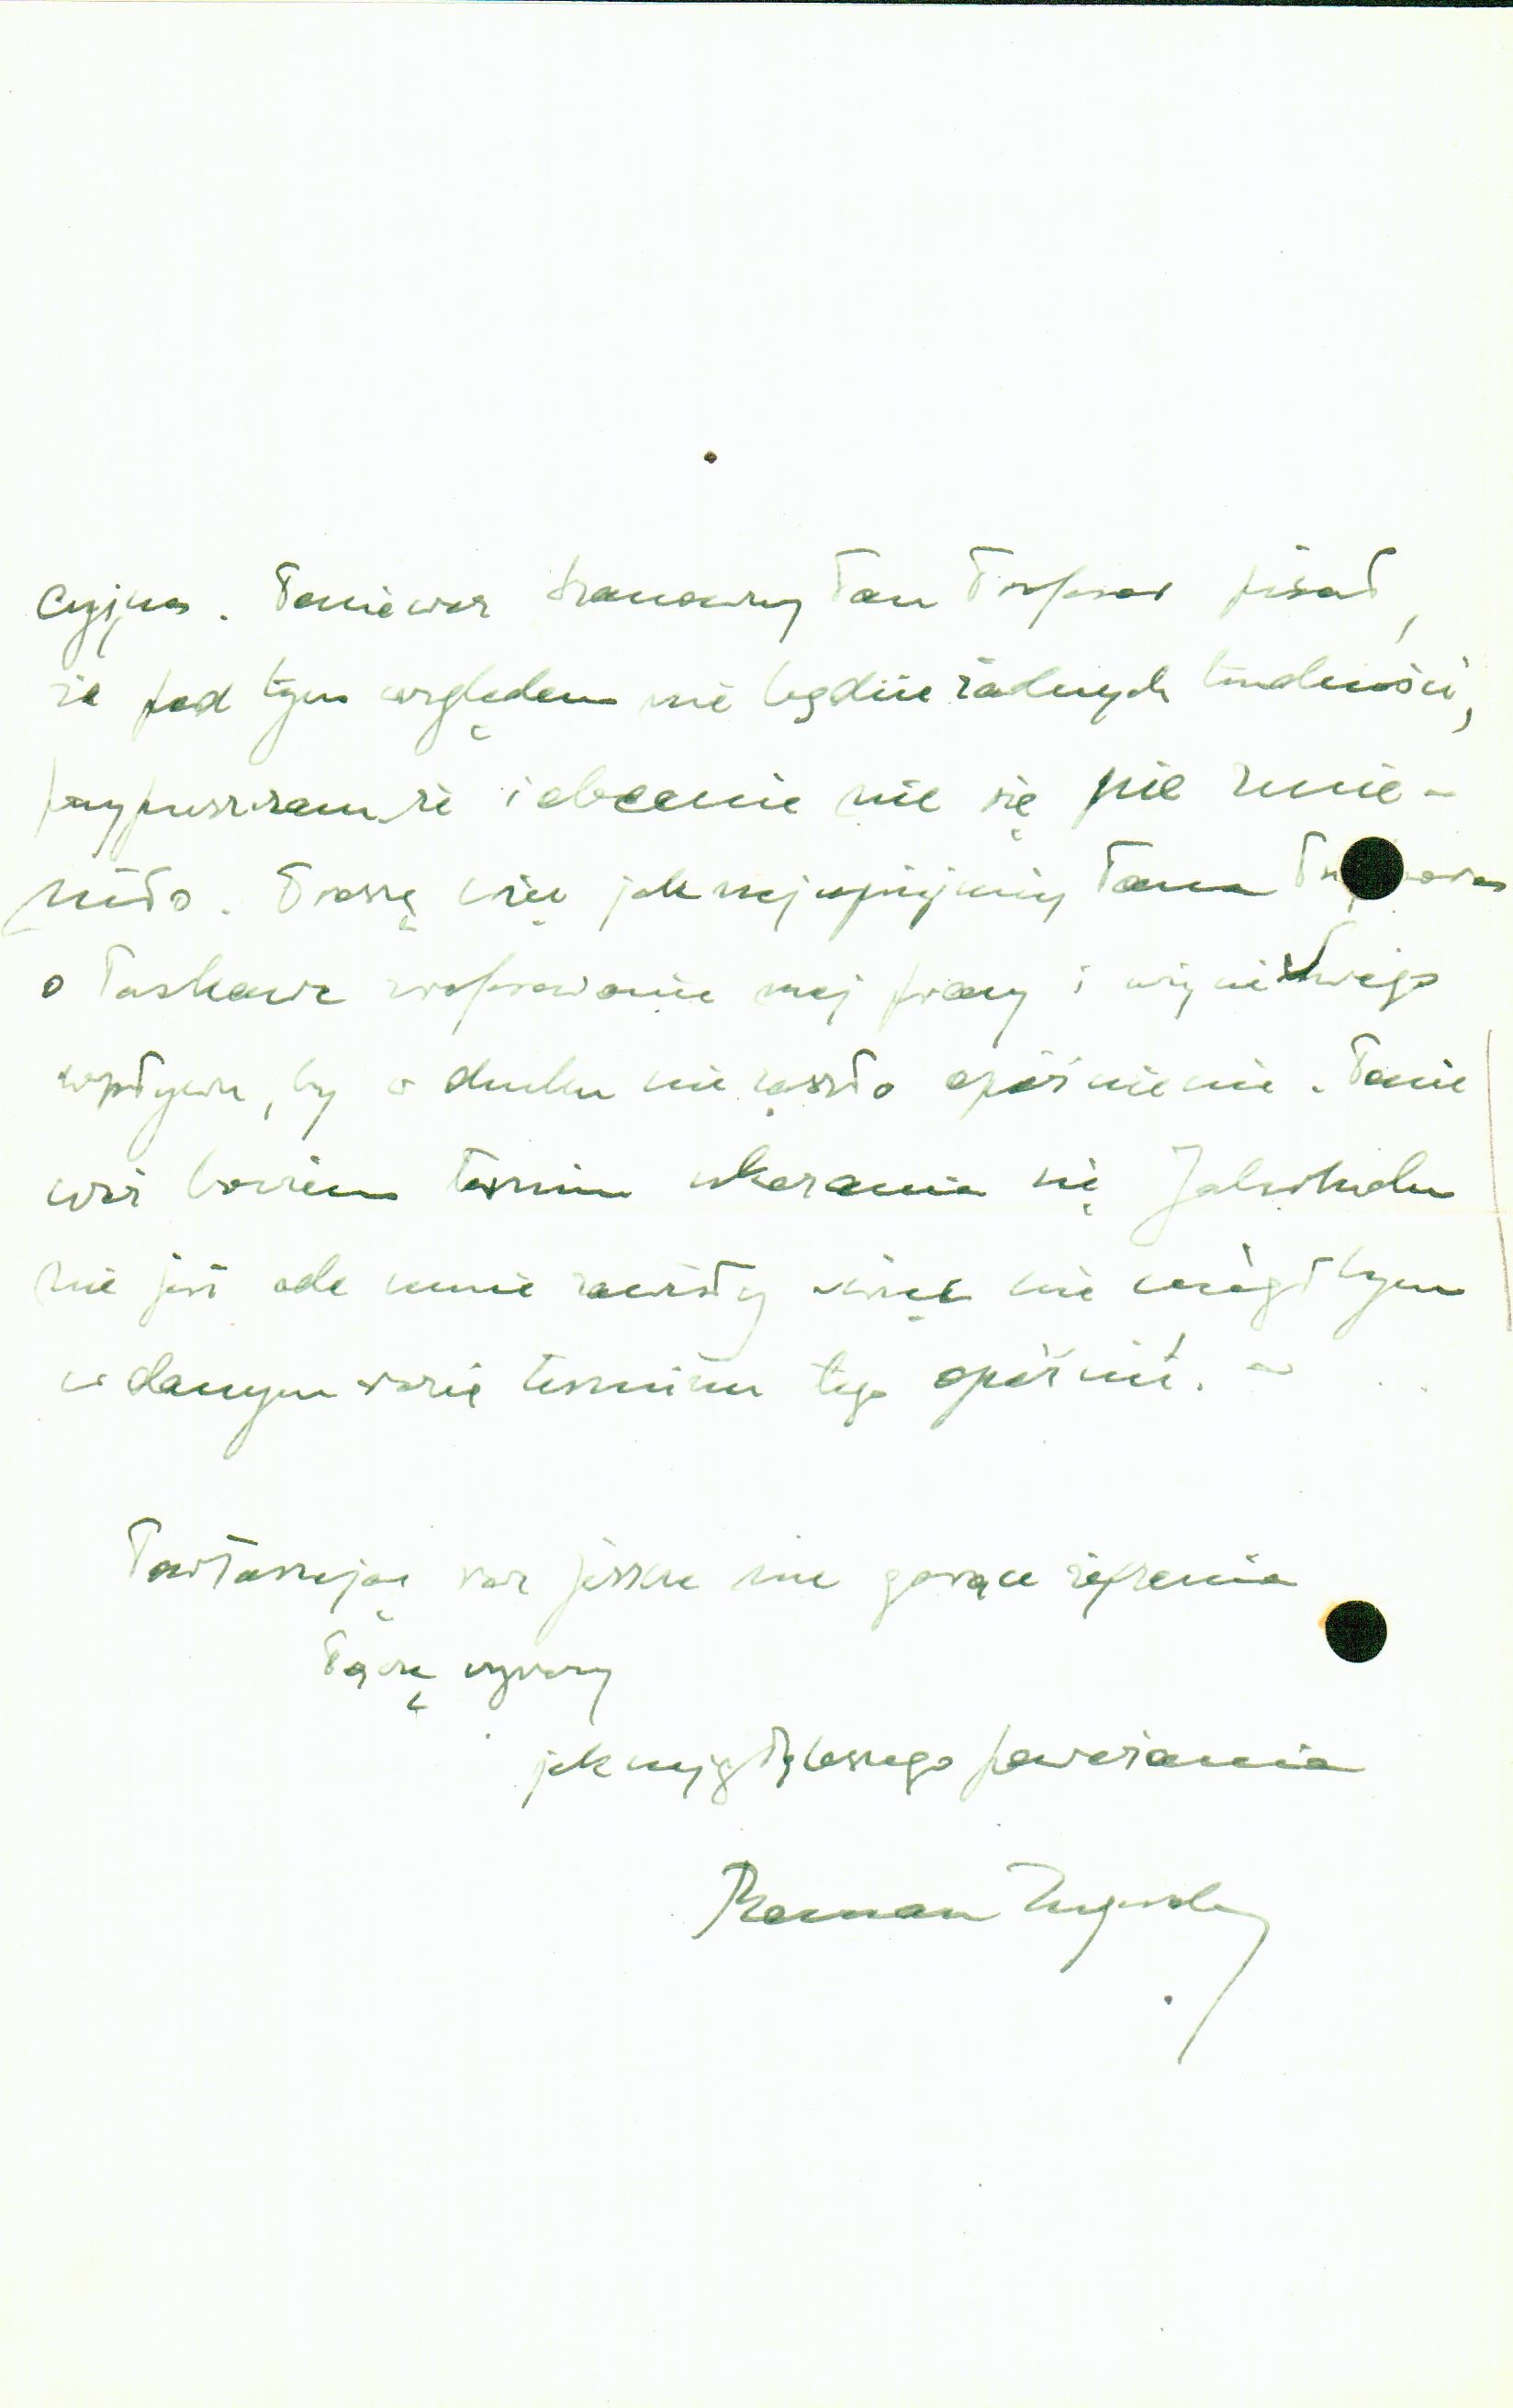 cyjna. Ponieważ Szanowny Pan Profesor pisał,
że pod tym względem nie będzie żadnych trudności,
przypuszczam, że i obecnie nic się nie zmie-
niło. Proszę więc jak najuprzejmiej Pana
o łaskawe mej pracy i
wpływu, by w druku nie zaszło opóźnienie. Ponie
waż bowiem termin ukazania się Jahrbuchu
nie jest ode mnie zawisły więc nie mógłbym
w danym razie terminu tego opóźnić. –
Powtarzając raz jeszcze me gorące życzenia
łączę wyrazy
jak najgłębszego poważania
Roman Ingarden